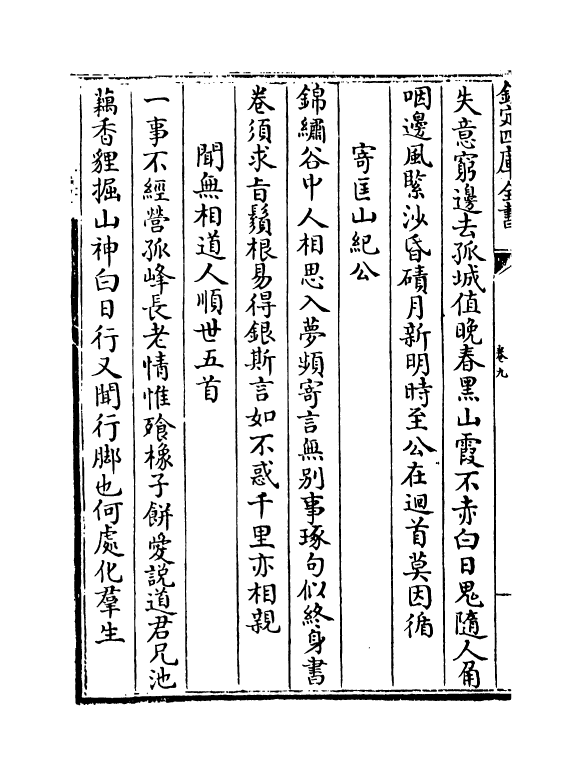 欽定四庫全書
卷九
失意窮邊去孤城值晚春黑山霞不赤白日鬼隨人角
咽邊風緊沙昏磧月新明時至公在迴首莫因循
寄匡山紀公
錦繡谷中人相思入夢頻寄言無別事琢句似終身書
卷須求旨鬚根易得銀斯言如不惑千里亦相親
聞無相道人順世五首
一事不經營孤峰長老情惟飡橡子餅愛說道君兄池
藕香貍掘山神白日行又聞行脚也何處化羣生